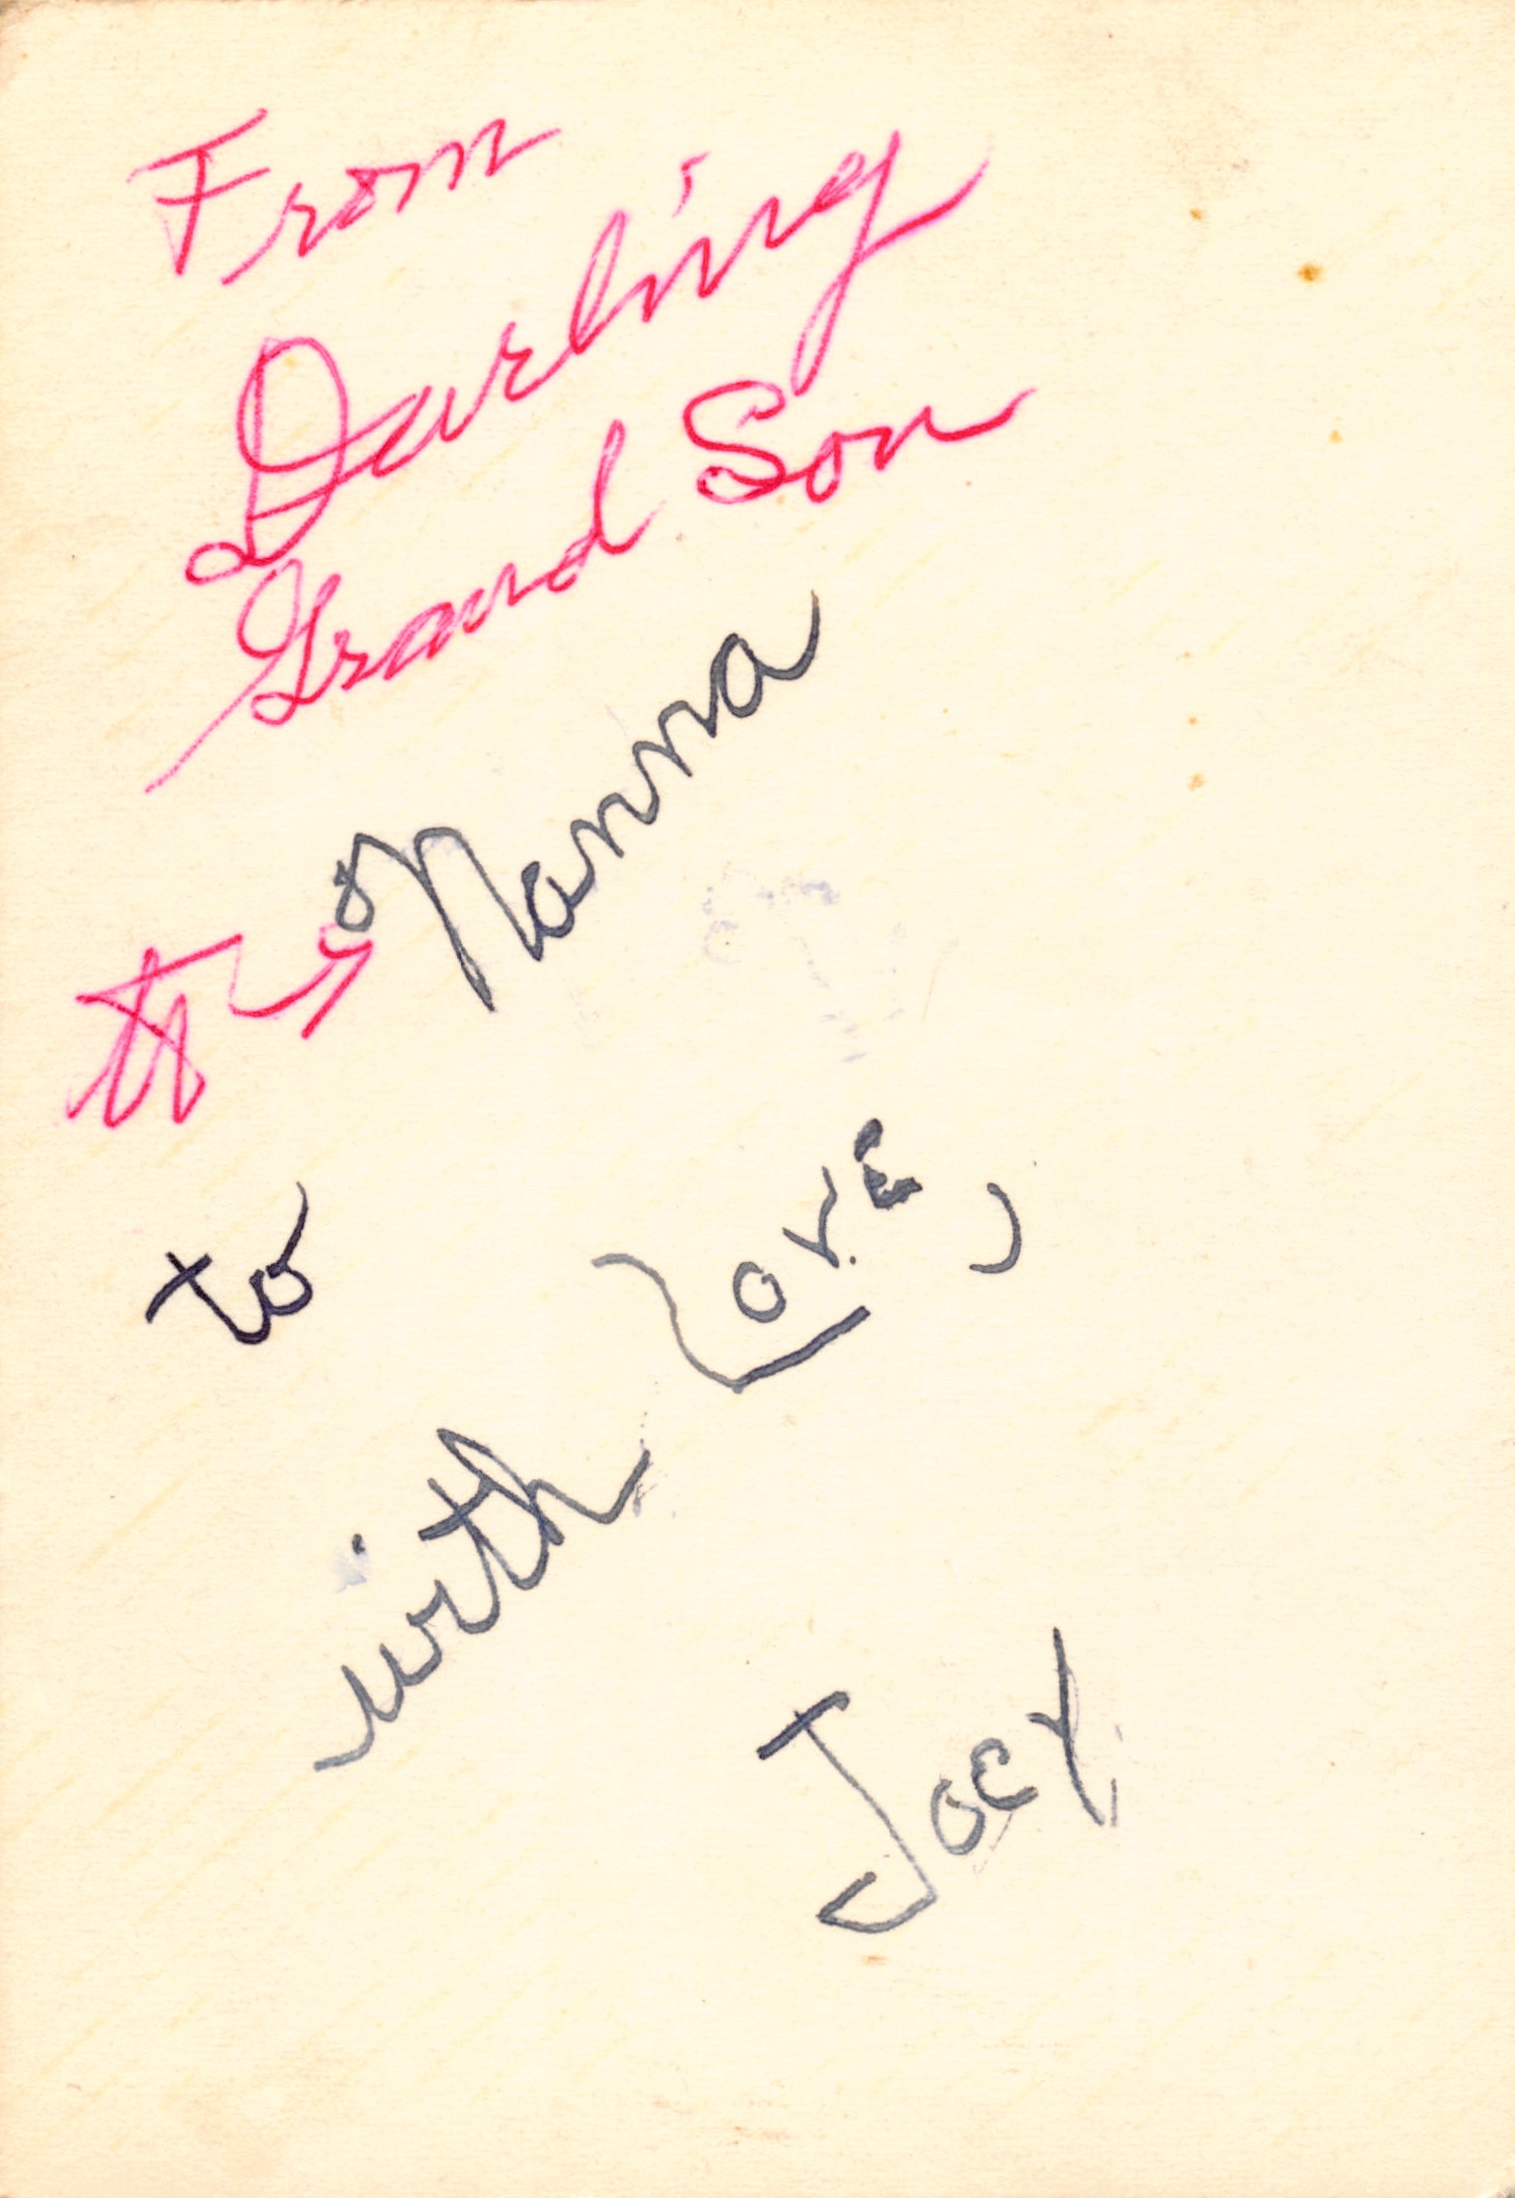 From
Darling
Grand Son
to
Nanna
to
with Love,
Joey